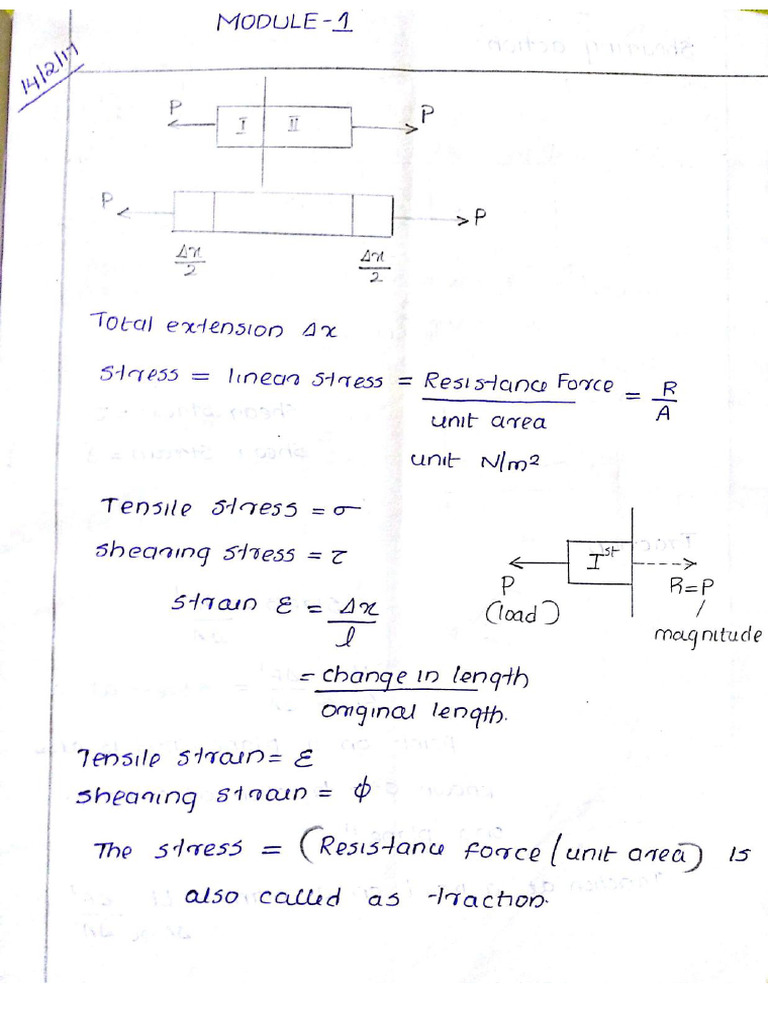 MODULE-1
14/2/17
P I II P
P P
Δx/2 Δx/2
Total extension Δx
stress = linear stress = Resistance Force / unit area = R/A
unit N/m²
Tensile stress = σ
shearing stress = τ
P (load) Iˢᵗ R=P
magnitude
strain ε = Δx/l
= change in length / original length.
Tensile strain = ε
shearing strain = ϕ
The stress = (Resistance force / unit area) is
also called as traction.